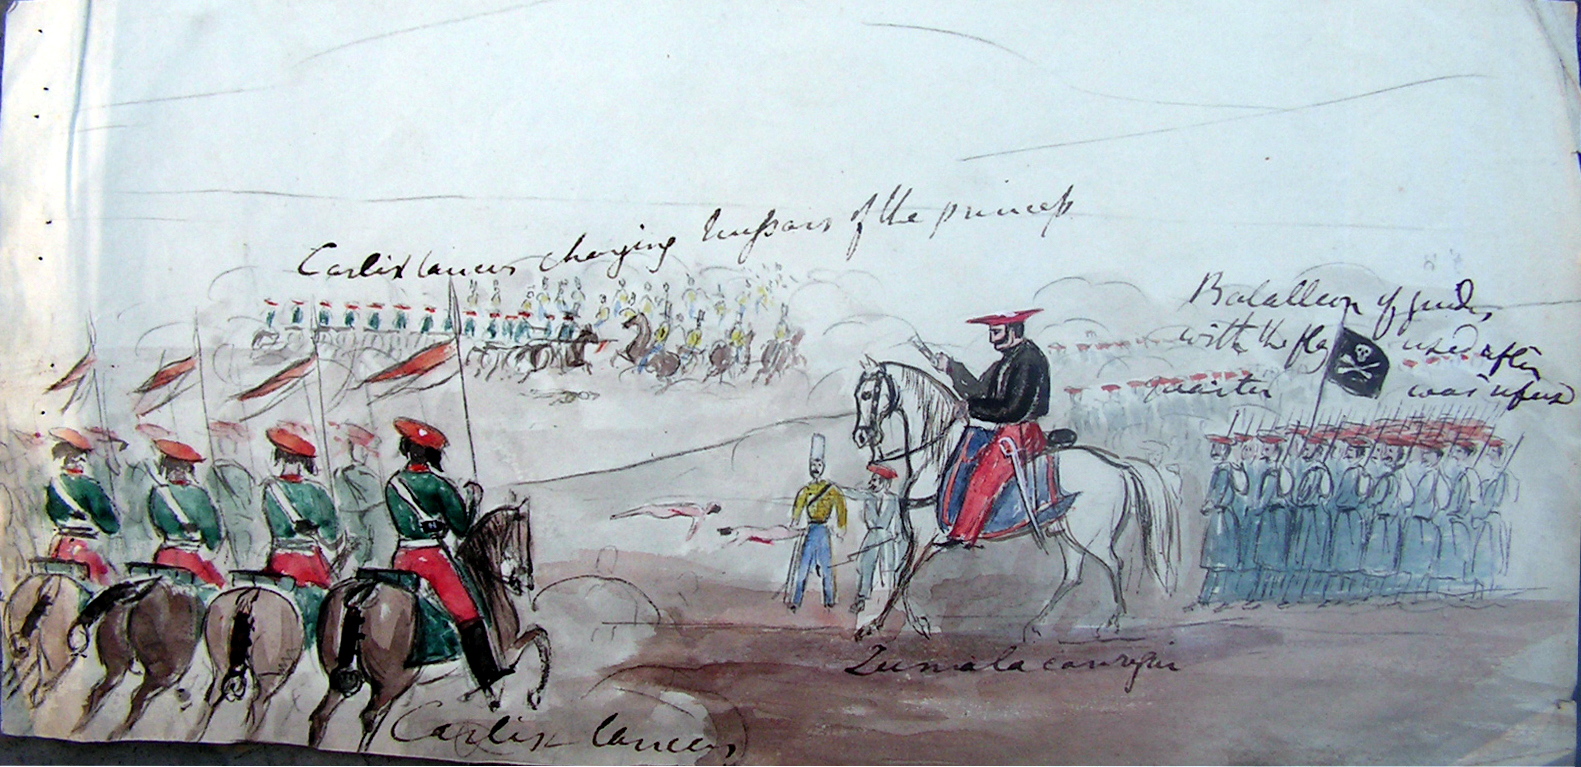 Carlist lancers charging hussars of the princess
Batallion of guides
with the flag used after
quarter was refused
Zumalacarregui
Carlist lancers